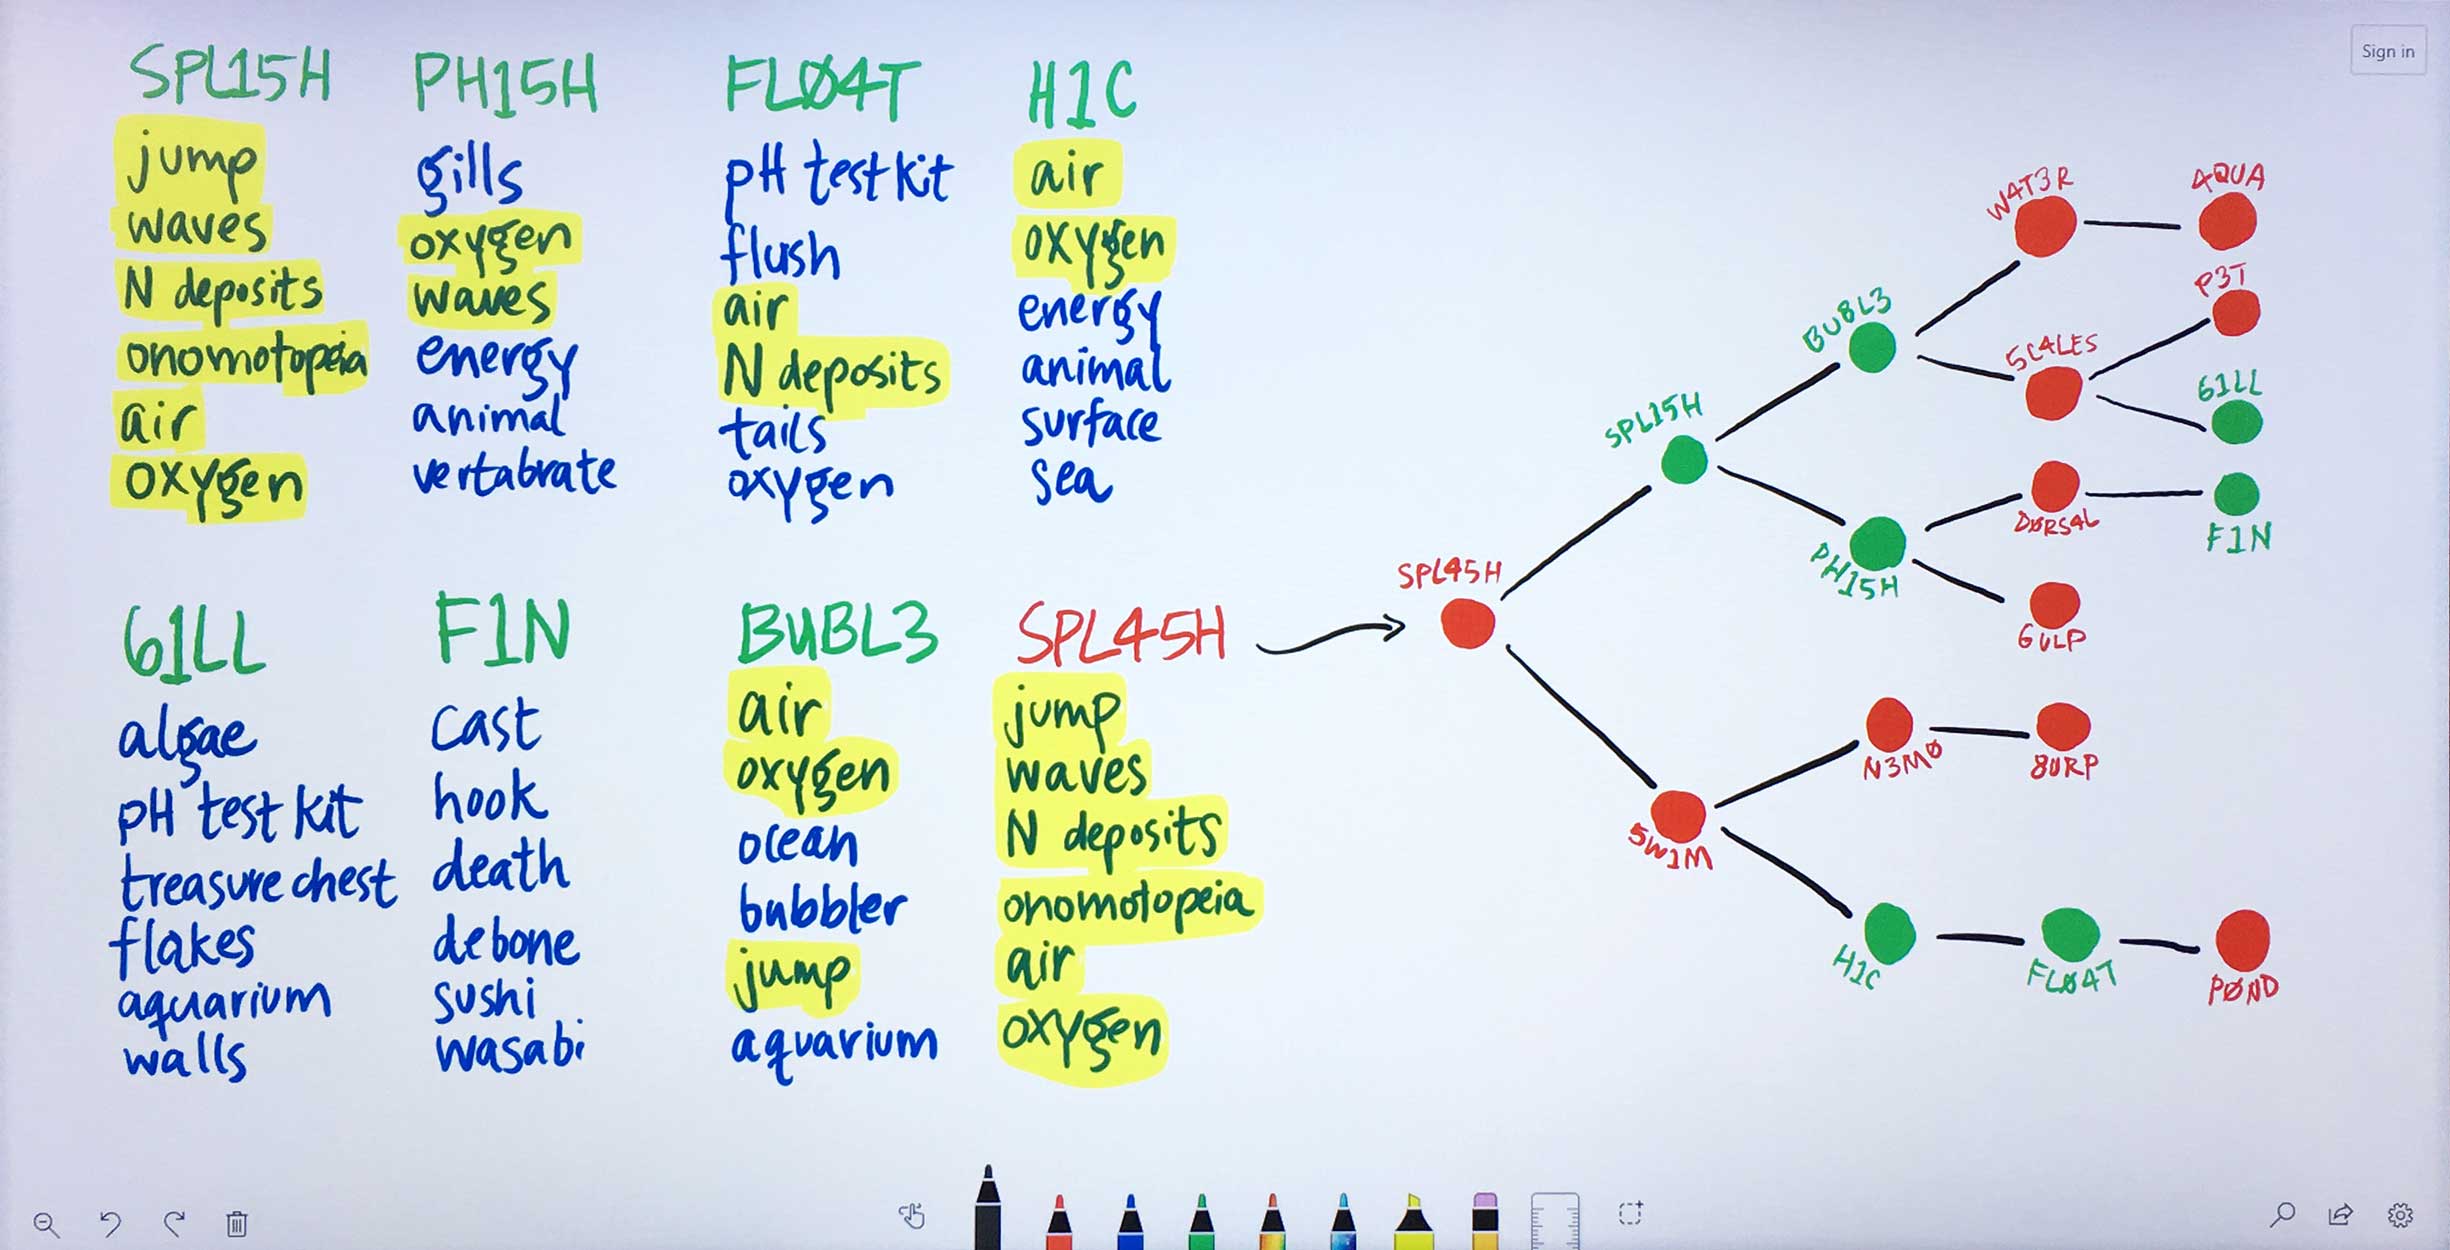 Sign in
SPL15H
jump
waves
N deposits
onomotopeia
air
oxygen
PH15H
gills
oxygen
waves
energy
animal
vertabrate
FLØ4T
pH test kit
flush
air
N deposits
tails
oxygen
H1C
air
oxygen
energy
animal
surface
sea
61LL
algae
pH test kit
treasure chest
flakes
aquarium
walls
F1N
cast
hook
death
debone
sushi
wasabi
BUBL3
air
oxygen
ocean
bubbler
jump
aquarium
SPL45H
jump
waves
N deposits
onomotopeia
air
oxygen
SPL45H
SPL15H
5W1M
BUBL3
PH15H
N3MØ
H1C
W4T3R
5C4LES
DØRS4L
GULP
BURP
FLØ4T
4QUA
P3T
61LL
F1N
PØND